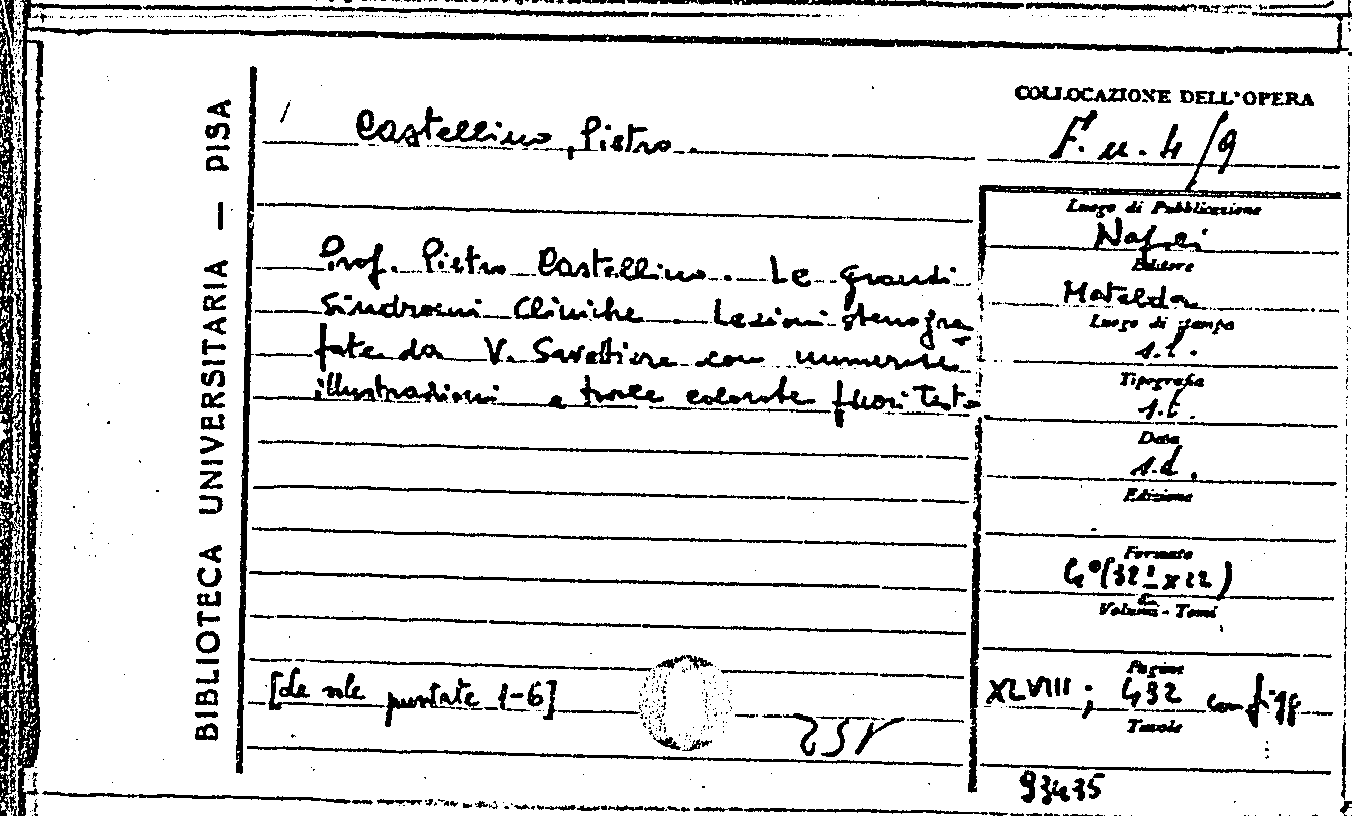 BIBLIOTECA UNIVERSITARIA — PISA
Castellino, Pietro.
Prof. Pietro Castellino. Le grandi
Sindromi Cliniche. Lezioni stenogra
fate da V. Savettiere con numerose
illustrazioni e tavole colorate fuori testo
puntate 1-6]
COLLOCAZIONE DELL'OPERA
F. u. 4/9
Luogo di Pubblicazione
Napoli
Editore
Luogo di stampa
s.l.
Tipografia
s.t.
Data
s.d.
Edizione
Formato
Volumi - Tomi
Pagine
XLVIII; 432 con figg
Tavole
93435